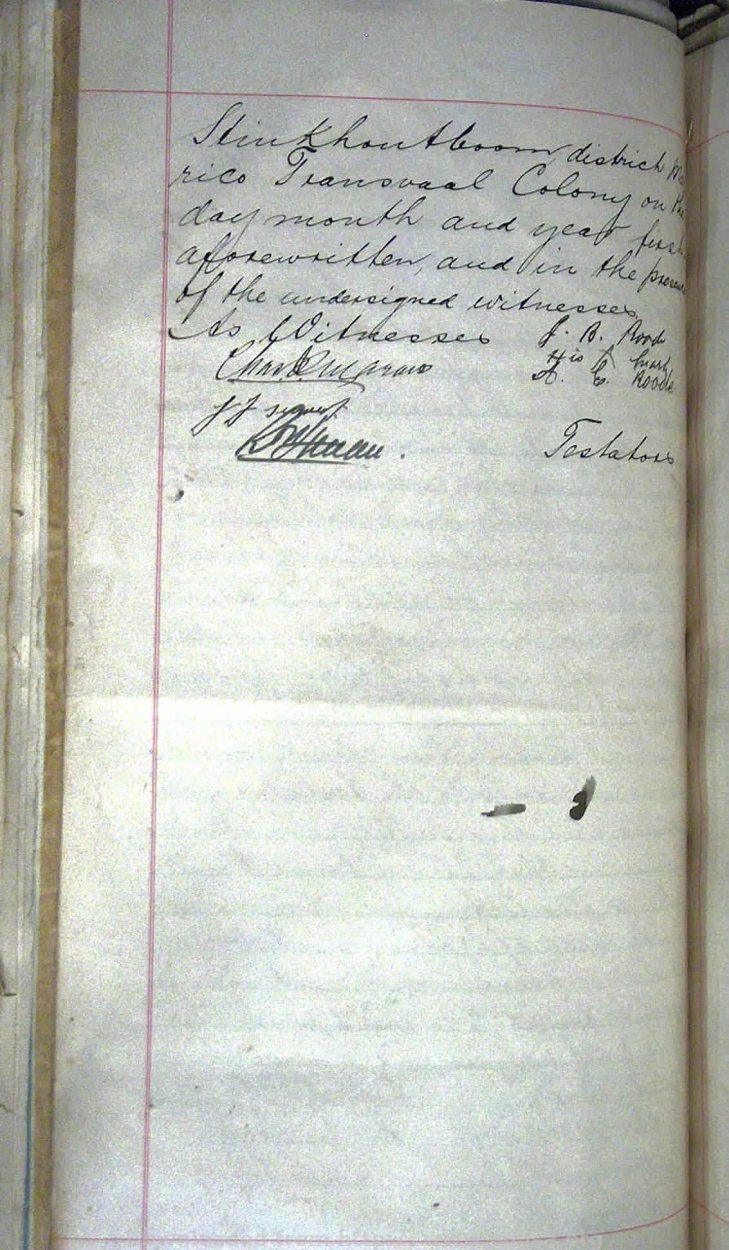 Stinkhoutboom, district Ma
rico Transvaal Colony on the
day month and year first
aforewritten, and in the presence
of the undersigned witnesses,
As Witnesses J. B. Roode
Chas Marais His X mark
A. C. Roode
J J
Testators